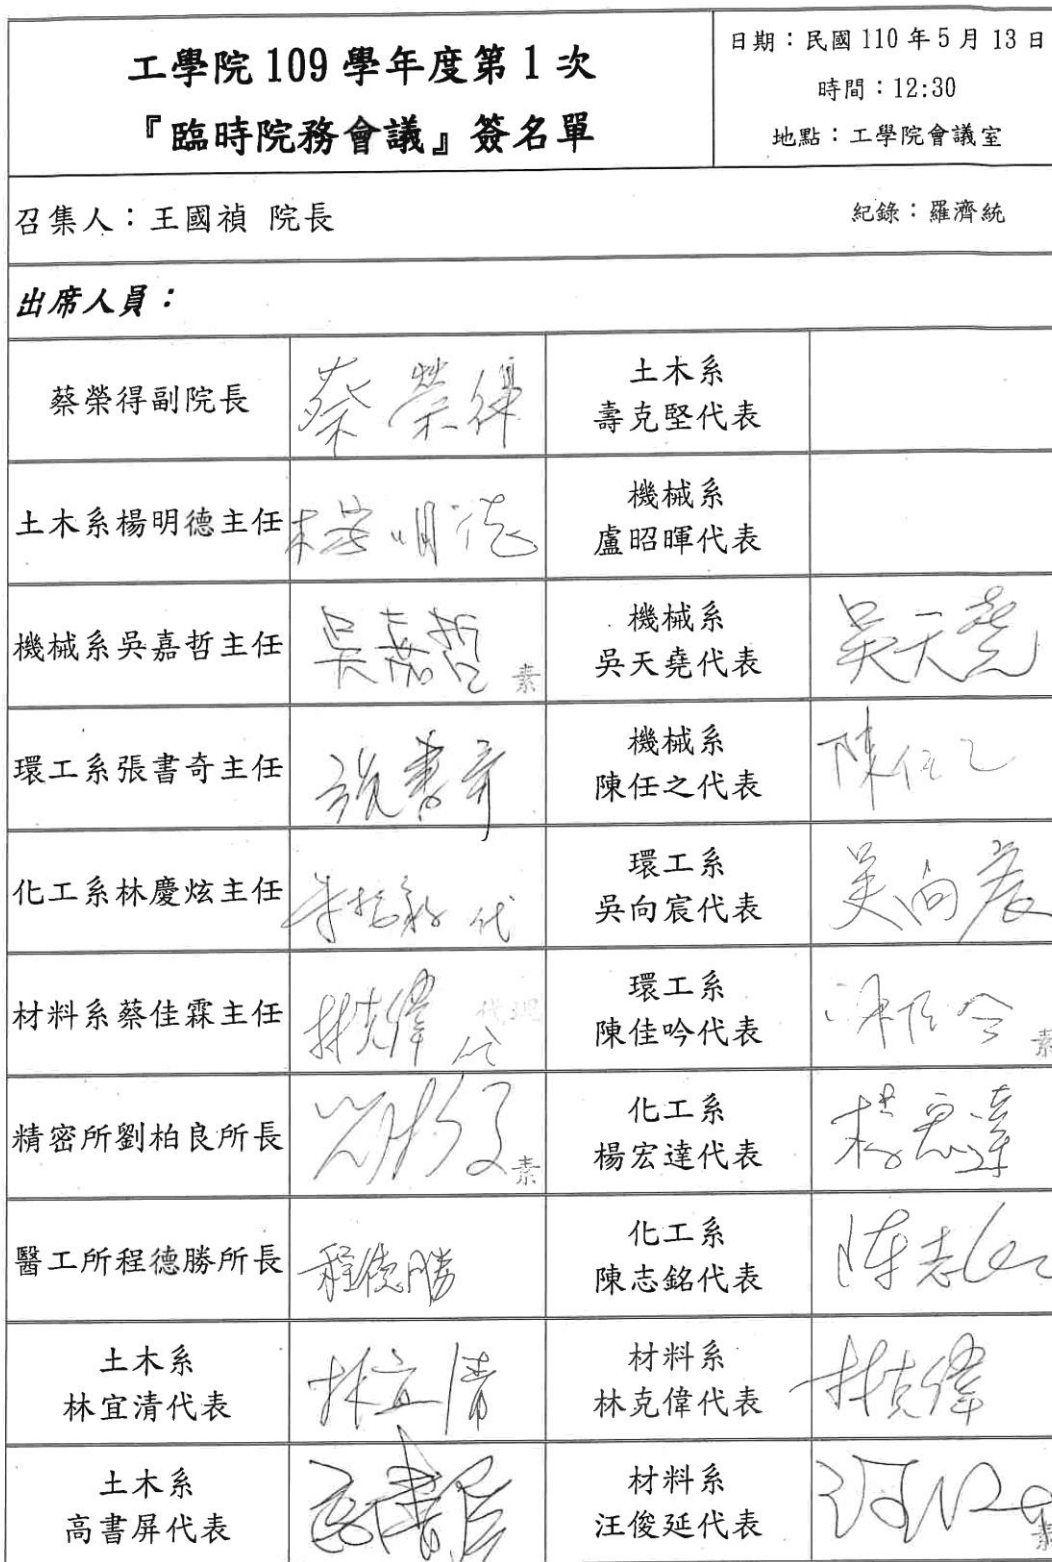 工學院 109 學年度第 1 次
『臨時院務會議』簽名單
日期：民國 110 年 5 月 13 日
時間：12:30
地點：工學院會議室
召集人：王國禎 院長
紀錄：羅濟統
出席人員：
蔡榮得副院長
蔡榮得
土木系
壽克堅代表
土木系楊明德主任
楊明德
機械系
盧昭暉代表
機械系吳嘉哲主任
吳嘉哲
素
機械系
吳天堯代表
吳天堯
環工系張書奇主任
張書奇
機械系
陳任之代表
陳任之
化工系林慶炫主任
代
環工系
吳向宸代表
吳向宸
材料系蔡佳霖主任
林克偉
代理
代
環工系
陳佳吟代表
素
精密所劉柏良所長
素
化工系
楊宏達代表
楊宏達
醫工所程德勝所長
程德勝
化工系
陳志銘代表
陳志銘
土木系
林宜清代表
林宜清
材料系
林克偉代表
林克偉
土木系
高書屏代表
高書屏
材料系
汪俊延代表
素